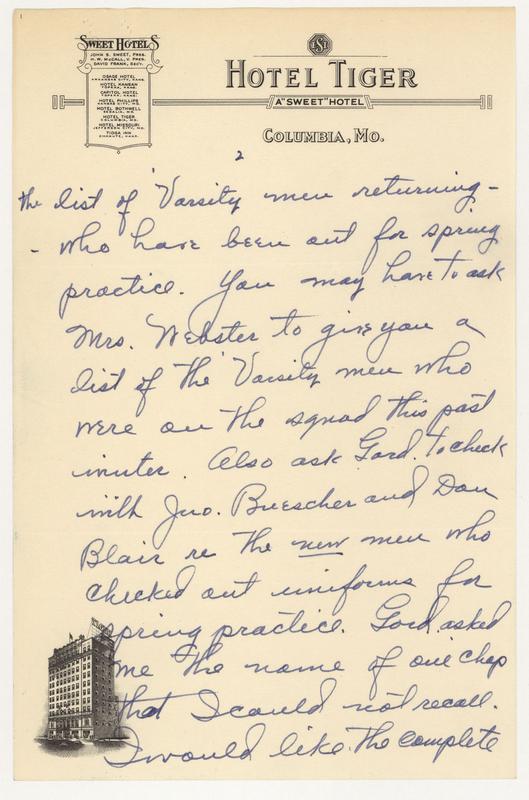 SWEET HOTELS
JOHN S. SWEET, PRES.
H. W. McCALL, V. PRES.
DAVID FRANK, SECY.
OSAGE HOTEL
ARKANSAS CITY, KANS.
HOTEL KANSAN
TOPEKA, KANS.
CAPITOL HOTEL
TOPEKA, KANS.
HOTEL PHILLIPS
KANSAS CITY, MO.
HOTEL BOTHWELL
SEDALIA, MO.
HOTEL TIGER
COLUMBIA, MO.
HOTEL MISSOURI
JEFFERSON CITY, MO.
TIOGA INN
CHANUTE, KANS.
HOTEL TIGER
A "SWEET" HOTEL
COLUMBIA, MO.
2
the list of 'Varsity men returning -
- who have been out for spring
practice. You may have to ask
Mrs. Webster to give you a
list of the 'Varsity men who
were on the squad this past
winter. Also ask Gord. to check
with Jno. Buescher and Don
Blair re the new men who
checked out uniforms for
spring practice. Gord. asked
me the name of one chap
that I could not recall.
I would like the complete